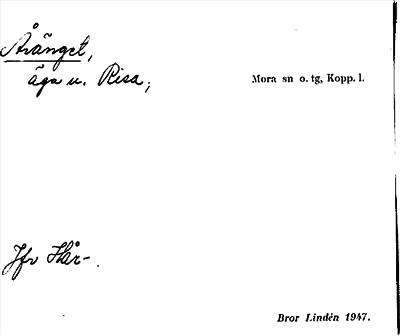 Åränget,
äga u. Risa;
Mora sn o. tg, Kopp. l.
Jfr Hår-.
Bror Lindén 1947.